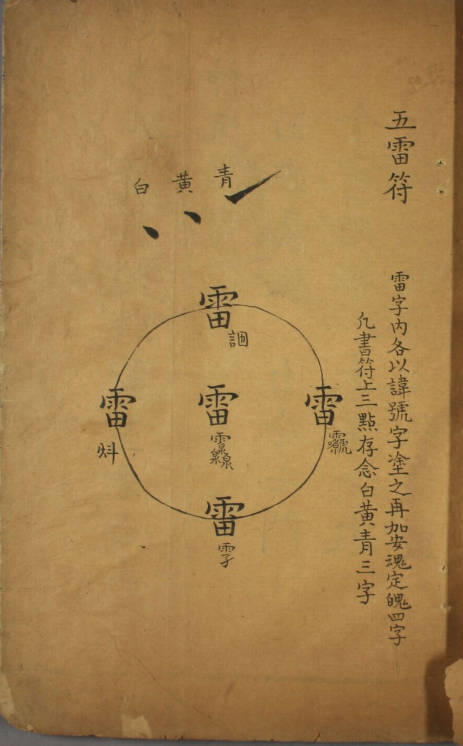 五雷符
雷字內各以諱號字塗之再加安魂定魄四字
凡書符上三點存念白黃青三字
青
黃
白
雷
雷
雷
雷
雷